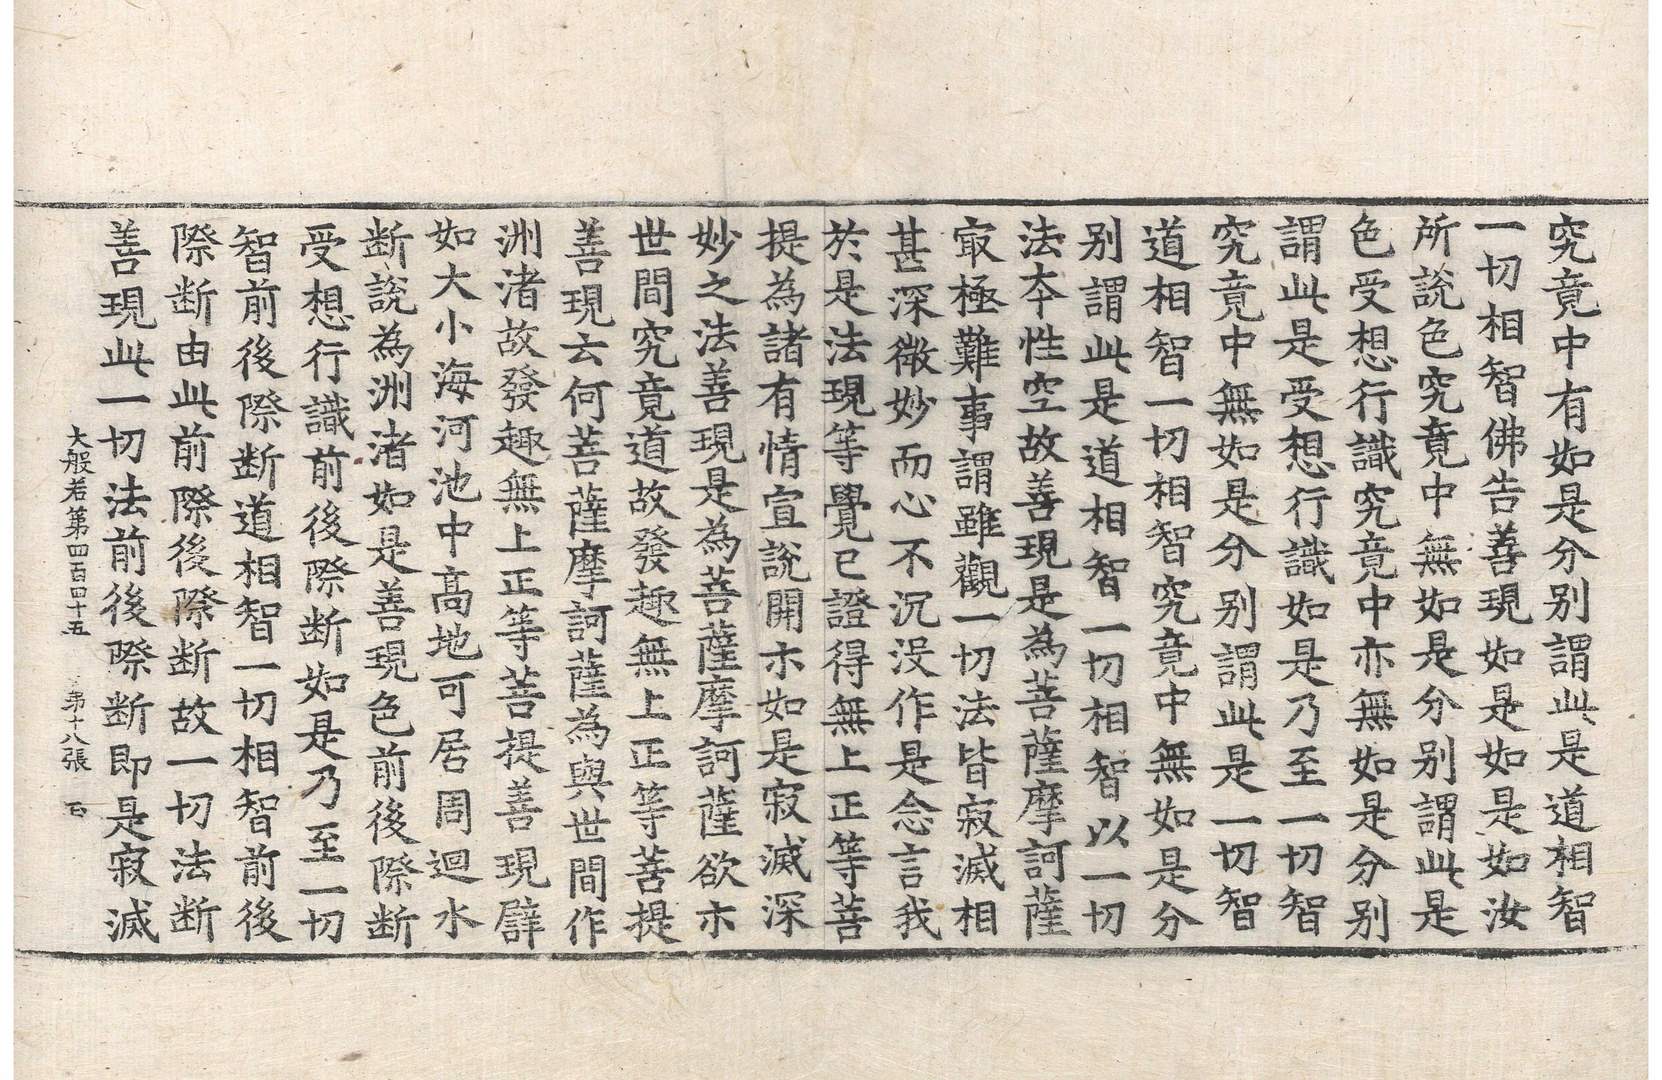 究竟中有如是分别謂此是道相智
一切相智佛告善現如是如是如汝
所說色究竟中無如是分别謂此是
色受想行識究竟中亦無如是分别
謂此是受想行識如是乃至一切智
究竟中無如是分别謂此是一切智
道相智一切相智究竟中無如是分
别謂此是道相智一切相智以一切
法本性空故善現是為菩薩摩訶薩
㝡極難事謂雖觀一切法皆寂滅相
甚深微妙而心不沉没作是念言我
於是法現等覺已證得無上正等菩
提為諸有情宣說開示如是寂滅深
妙之法善現是為菩薩摩訶薩欲示
世間究竟道故發趣無上正等菩提
善現云何菩薩摩訶薩為與世間作
洲渚故發趣無上正等菩提善現譬
如大小海河池中高地可居周迴水
断說為洲渚如是善現色前後際断
受想行識前後際断如是乃至一切
智前後際断道相智一切相智前後
際断由此前際後際断故一切法断
善現此一切法前後際断即是寂滅
大般若第四百四十五 第十八張